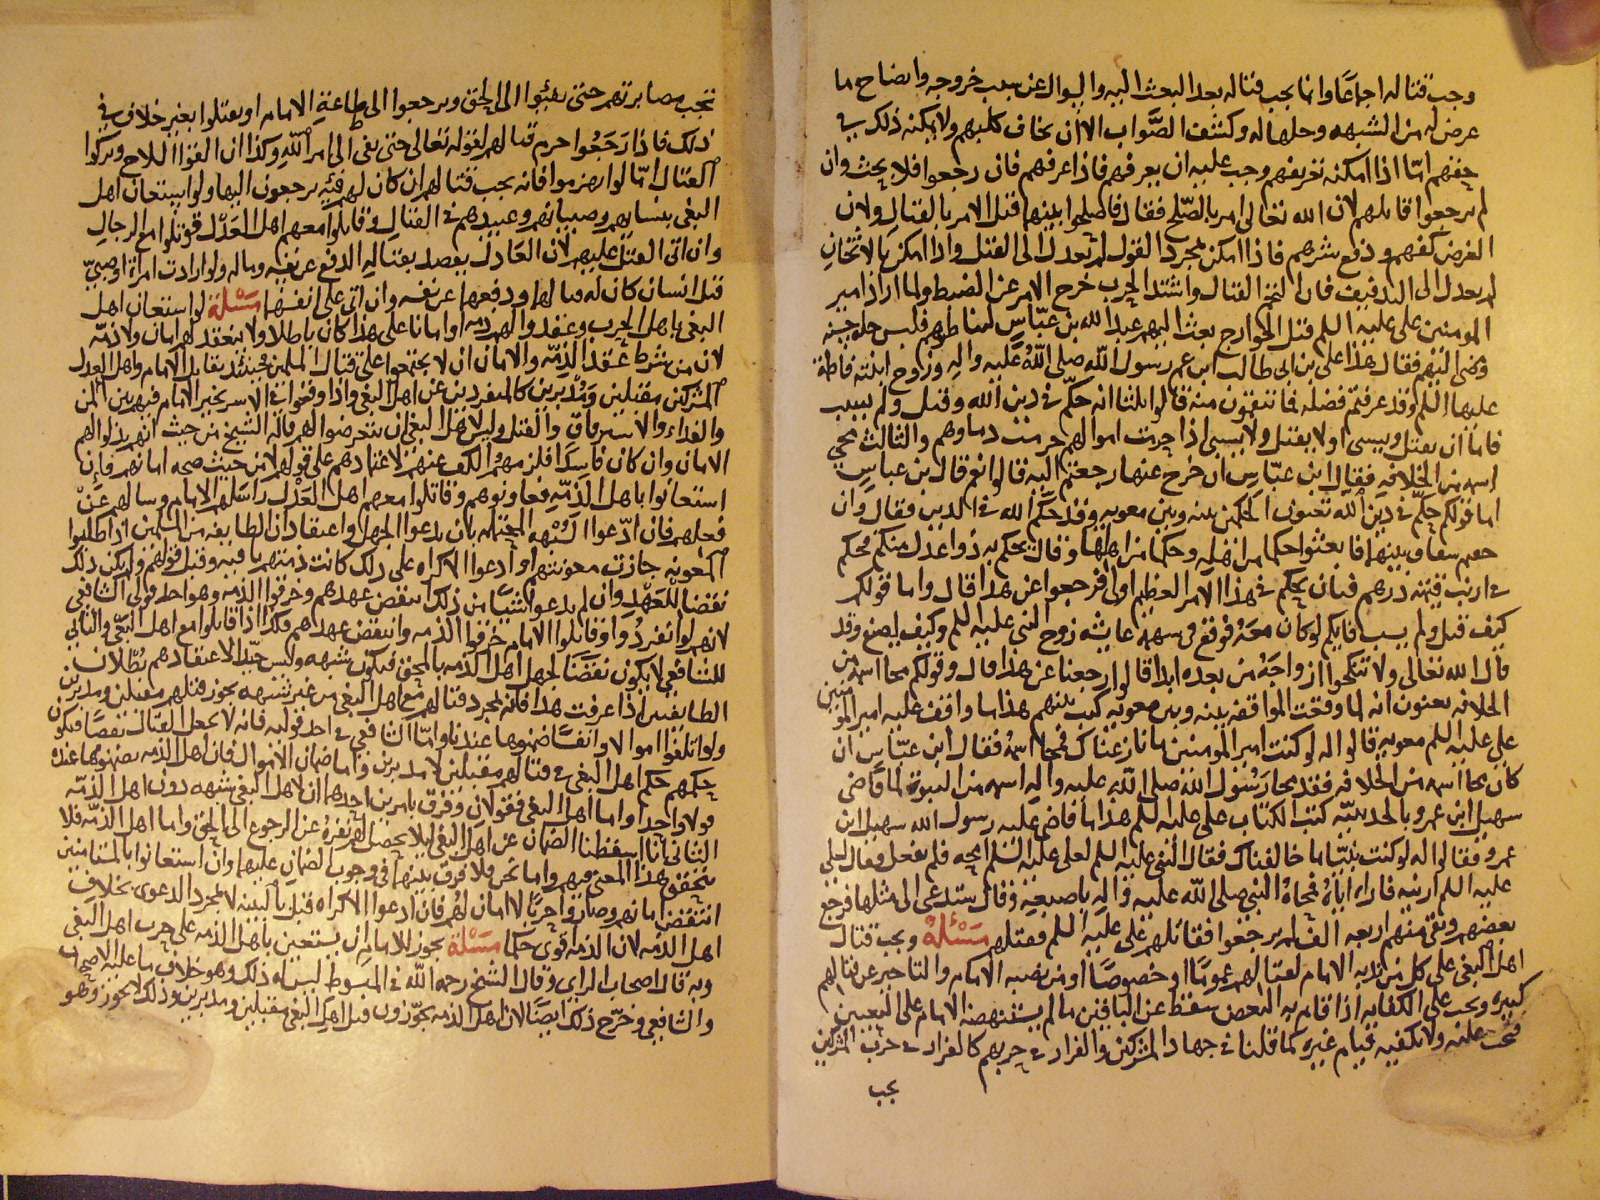 وجب قتاله اجماعًا وانما يجب قتاله بعد البعث اليه والسوال عن سبب خروجه وايضاح ما
عرض له من الشبهه وحلها له وكشف الصَّواب الا ان يخاف كلبهم ولا يمكنه ذلك في
حقهم امّا اذا امكنه تعريفهم وجب عليه ان يعرفهم فاذا عرفهم فان رجعوا فلا بحث وان
لم يرجعوا قاتلهم لان الله تعالى امر بالصّلح فقال فاصلحوا بينهما قبل الامر بالقتال ولان
الغرض كفهم ودفع شرهم فاذا امكن بمجرد القول لم يعدل الى القتل واذا امكن بالاثخان
لم يعدل الى التدفيف فان التحم القتال واشتد الحرب خرج الامر عن الضبط ولما اراد امير
المومنين علي عليه السلم قتل الخوارج بعث اليهم عبد الله بن عبّاس ليناظرهم فلبس حلة حسنه
ومضى اليهم فقال هذا علي بن ابي طالب ابن عم رسول الله صلى الله عليه واله وزوج ابنته فاطمة
عليها السلم وقد عرفتم فضله فما تنقمون منه قالوا ثلثا انه حكّم في دين الله وقتل ولم يسب
فاما ان يقتل ويسبى او لا يقتل ولا يسبى اذا حرمت اموالهم حرمت دماوهم والثالث محى
اسمه من الخلافه فقال ابن عبّاس ان خرج عنها رجعتم اليه قالوا نعم قال بن عباس
اما قولكم حكّم في دين الله تعنون الحكمين بينه وبين معويه وقد حكّم الله في الدين فقال وان
خفتم شقاق بينهما فابعثوا حكما من اهله وحكما من اهلها وقال يحكم به ذوا عدل منكم فحكم
في ارنب قيمته درهم فبان يحكم في هذا الامر العظيم اولى فرجعوا عن هذا قال واما قولكم
كيف قتل ولم يسب فايكم لو كان معه فوقع في سهمه عايشه زوج النبي عليه السلم وكيف يصنع وقد
قال الله تعالى ولا تنكحوا ازواجه من بعده ابدا قالوا رجعنا عن هذا قال وقولكم محا اسمه من
الخلافه يعنون انه لما وقعت المواقفه بينه وبين معويه كتب بينهم هذا ما واقف عليه امير المومنين
علي عليه السلم معويه قالوا له لو كنت امير المومنين ما نازعناك فمحا اسمه فقال ابن عبّاس ان
كان محا اسمه من الخلافه فقد محا رسول الله صلى الله عليه واله اسمه من النبوة لما قاضى
سهيل ابن عمرو بالحديبيّه كتب الكتاب علي عليه السلم هذا ما قاضى عليه رسول الله سهيل ابن
عمرو فقالوا له لو كنت نبيّا ما خالفناك فقال النبي عليه السلم لعلي عليه السلم امحه فلم يفعل فقال لعلي
عليه السلم ارنيه فاراه اياه فمحاه النبي صلى الله عليه واله باصبعه وقال ستدعى الى مثلها فرجع
بعضهم وبقي منهم اربعه الف لم يرجعوا فقاتلهم علي عليه السلم فقتلهم مَسْئلةٌ ويجب قتال
اهل البغي على كل من ندبه الامام لقتالهم عمومًا او خصوصًا او من نصبه الامام والتاخير عن قتالهم
كبيره ويجب على الكفايه اذا قام به البعض سقط عن الباقين ما لم يستنهضه الامام على التعيين
فيجب عليه ولا يكفيه قيام غيره كما قلنا في جهاد المشركين والفرار في حربهم كالفرار في حرب المشركين
يجب
تجب مصابرتهم حتى يفيئوا الى الحق ويرجعوا الى طاعة الامام او يقتلوا بغير خلاف في
ذلك فاذا رَجَعُوا حرم قتالهم لقوله تعالى حتى تفي الى امر الله وكذا ان القوا السلاح وتركوا
القتال امّا لو انهزموا فانه يجب قتالهم ان كان لهم فئه يرجعون اليها ولو استعان اهل
البغي بنسائهم وصبيانهم وعبيدهم في القتال وقاتلوا معهم اهل العَدْل قوتلوا مع الرجال
وان اتى القتل عليهم لان العادل يقصد بقتاله الدفع عن نفسه وماله ولو ارادت امرأة او صبيّ
قتل انسان كان له قتالها ودفعها عن نفسه وان اتى على نفسها مَسْئلة لو استعان اهل
البغي باهل الحرب وعقدوا لهم ذمه او امانا على هذا كان باطلا ولا ينعقد لهم امان ولا ذمّه
لان من شرط عقد الذمّه والامان ان لا يجتمعوا على قتال المسلمين فحينئذ يقاتل الامام واهل العدل
المشركين مقبلين ومدبرين كالمنفردين عن اهل البغي واذا وقعوا في الاسر تخير الامام فيهم بين المن
والفداء والاسترقاق والقتل وليس لاهل البغي ان يتعرضوا لهم قاله الشيخ من حيث انهم بذلوا لهم
الامان وان كان فاسدًا فلزمهم الكف عنهم لاعتقادهم على قولهم لا من حيث صحه امانهم فان
استعانوا باهل الذمّه فعاونوهم وقاتلوا معهم اهل العَدْل راسَلهم الامام وسالهم عَنْ
فعلهم فان ادّعوا الشبهه المحتمله بان يدعوا الجهل واعتقاد ان الطايفه من المسلمين اذا طلبوا
المعونه جازت معونتهم او ادعوا الاكراه على ذلك كانت ذمتهم باقيه وقبل قولهم ولم يكن ذلك
نقضا للعهد وان لم يدعوا شيئًا من ذلك انتقض عهدهم وخرقوا الذمه وهو احد قولي الشافعي
لانهم لو انفردُوا وقاتلوا الامام خرقوا الذمه وانتقض عهدهم فكذا اذا قاتلوا مع اهل البغي والثاني
للشافعي لا يكون نقضًا لجهل اهل الذمه بالمحق فيكون شبهه وليس جيّدا لاعتقادهم بُطلان
الطايفتين اذا عرفت هذا فانه بمجرد قتالهم مع اهل البغي من غير شبهه يجوز قتلهم مقبلين ومدبرين
ولو اتلفوا اموالا وانفسًا ضمنوها عندنا وامّا الشافعي في احد قوليه فانه لا يجعل القتال نقضًا فيكون
حكمهم حكم اهل البغي في قتالهم مقبلين لا مدبرين واما ضمان الاموال فان اهل الذمه يضمنوها عنده
قولا واحدا واما اهل البغي فقولان وفرق بامرين احدهما ان لاهل البغي شبهه دون اهل الذمّه
الثاني انّا اسقطنا الضمان عن اهل البغي ليلا يحصل لهم نفرة عن الرجوع الى الحق واما اهل الذمّه فلا
يتحقق هذا المعنى فيهم واما نحن فلا فرق بينهما في وجوب الضمان عليهما وان استعانوا بالمستامنين
انتقض امانهم وصاروا حربًا لا امان لهم فان ادعوا الاكراه قبل بالبينه لا بمجرد الدعوى بخلاف
اهل الذمه لان الذمه قوى حكما مَسْئلة يجوز للامام ان يستعين باهل الذمه على حرب اهل البغي
وبه قال اصحاب الراي وقال الشيخ رحمه الله في المبسوط ليس له ذلك وهو خلاف ما عليه الاصحاب
والشافعي وخرّج ذلك ايضًا لان اهل الذمه يجوّزون قتل اهل البغي مقبلين ومدبرين وذلك لا يجوز وهو